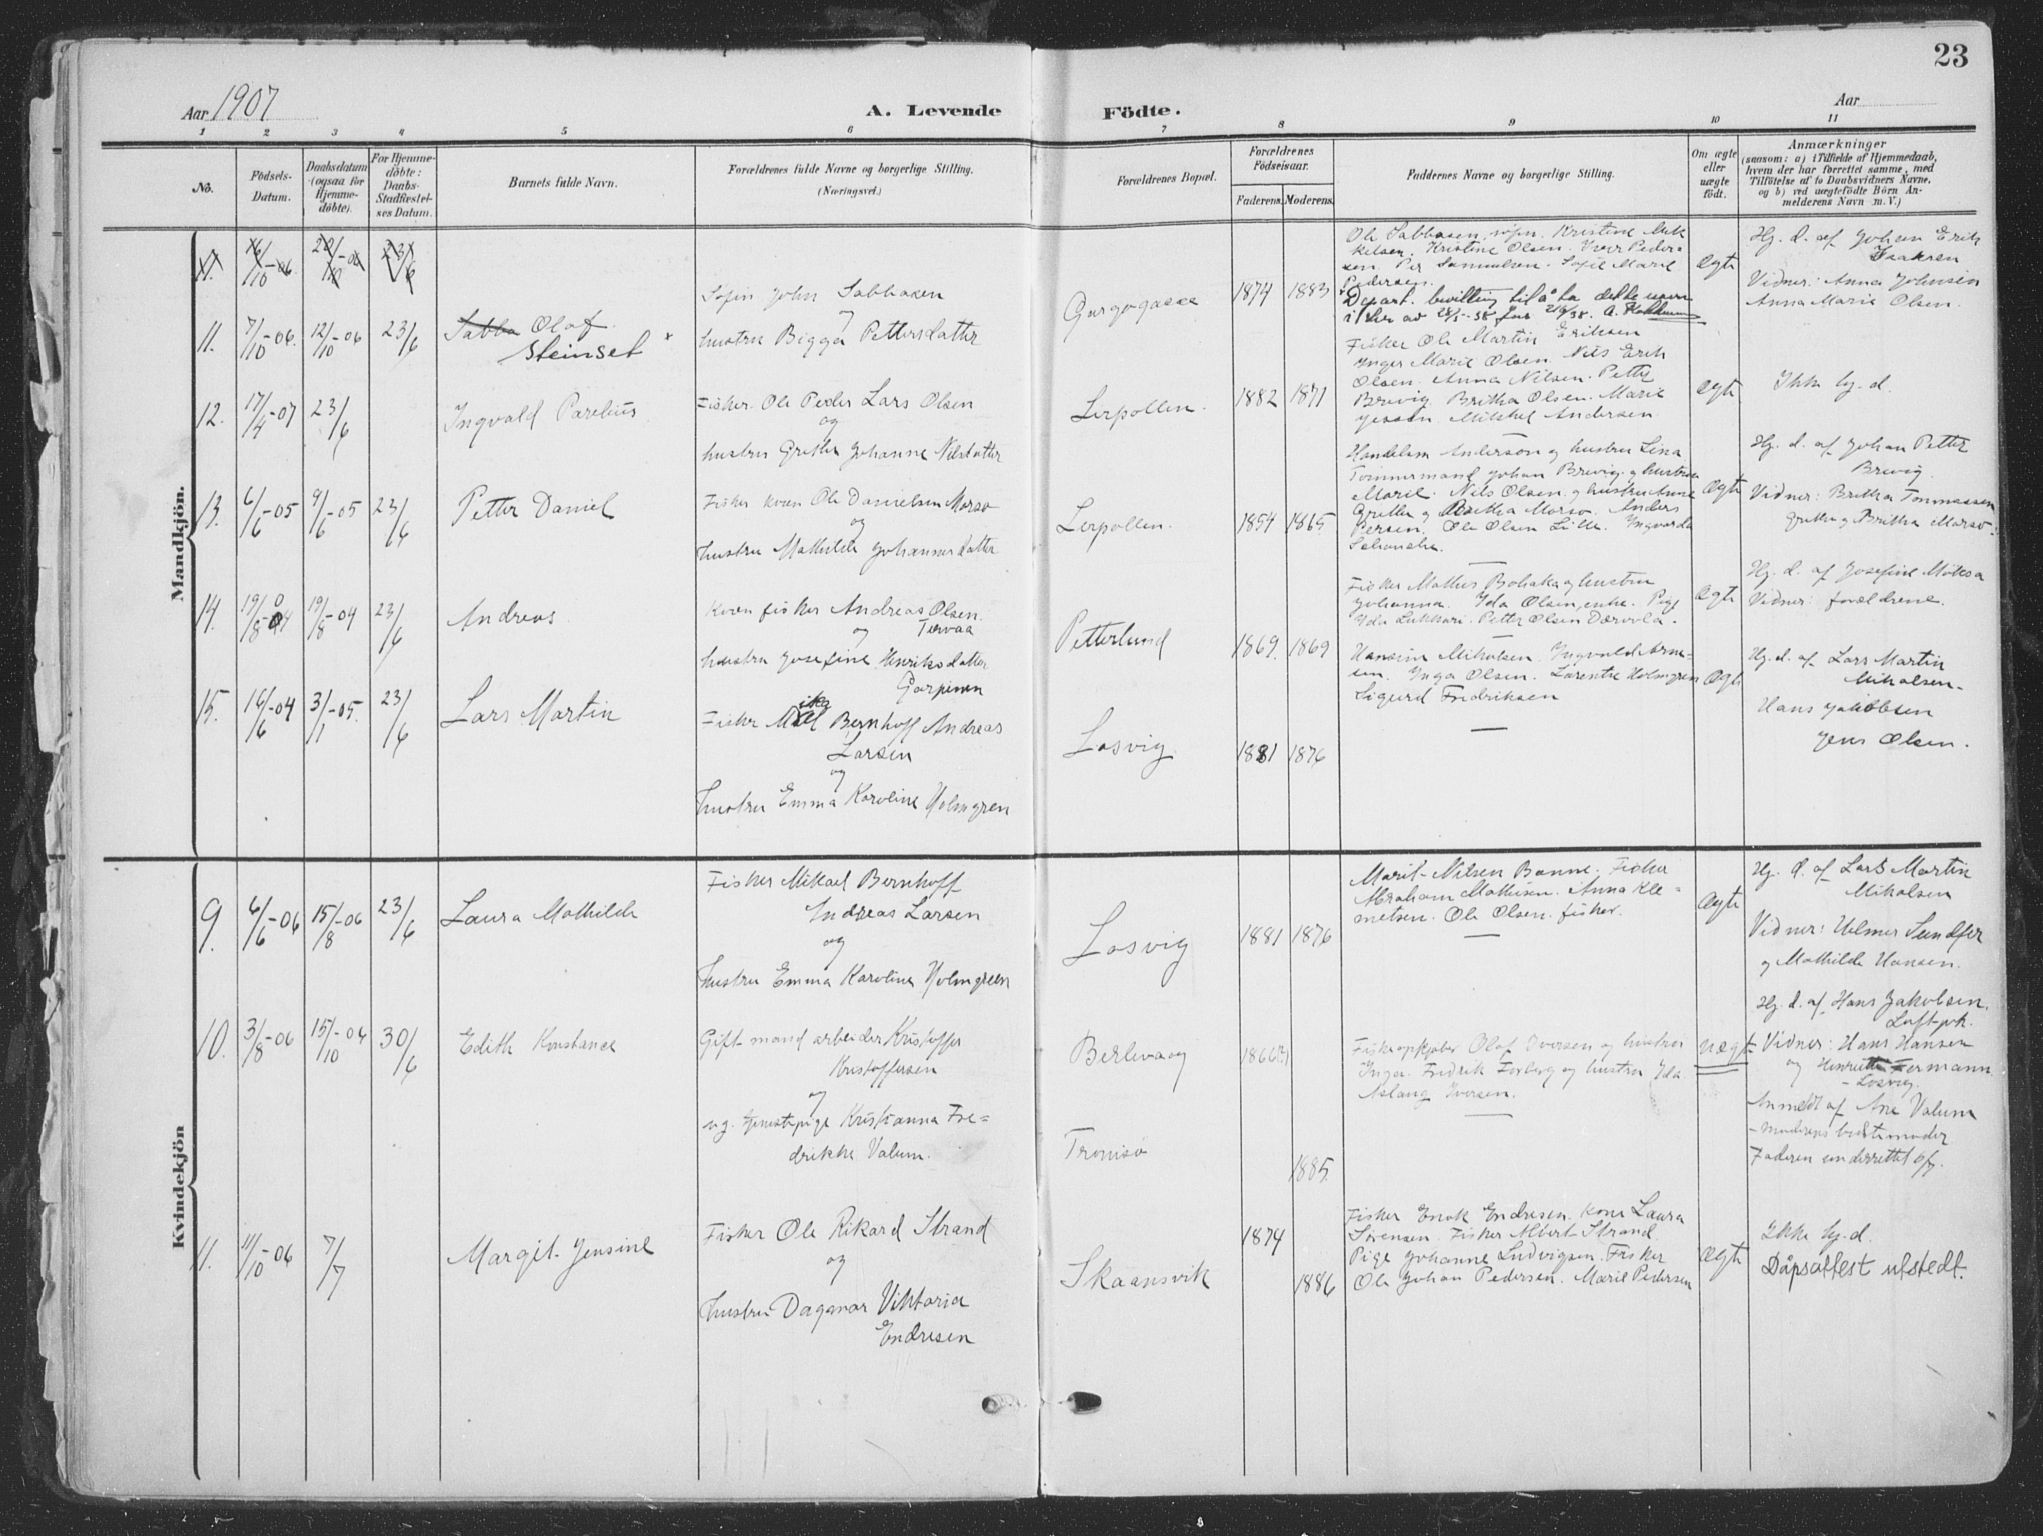 23
Aar 1907
A. Levende Födte.
Aar
1 2 3 4 5 6 7 8 9 10 11
No.
Födsels-
Datum.
Daabsdatum
(ogsaa for
Hjemme-
döbte).
For Hjemme-
döbte:
Daabs-
Stadfæstel-
ses Datum.
Barnets fulde Navn.
Forældrenes fulde Navne og borgerlige Stilling.
(Næringsvei.)
Forældrenes Bopæl.
Forældrenes
Födselsaar.
Faderens. Moderens.
Faddernes Navne og borgerlige Stilling.
Om ægte
eller
uægte
födt.
Anmærkninger
(saasom: a) i Tilfælde af Hjemmedaab,
hvem der har forrettet samme, med
Tilföielse af to Daabsvidners Navne,
og b) ved uægtefödte Börn An-
melderens Navn m. V.)
Mandkjön.
11. 7/10-06. 12/10-06 23/6
Sabba Olaf
Steinset
John Sabbasen
og
hustru Bigga Pettersdatter
1874 1883
Ole Sabbasen, Kristine Mik
kelsen. Kristine Olsen. Iver Peder-
sen. Per Samuelsen. Sofie Marie
Pedersen.
Depart. bevilling til å ta dette navn
ægte
Hj. d. af Johan Erik
Isaksen
Vidner: Anna Johnsen
Anna Marie Olsen.
12. 17/4-07 23/6
Ingvald Parelius
Fisker Ole Peder Lars Olsen
og
hustru Grethe Johanne Nilsdatter
Lerpollen.
1882 1871
Fisker Ole Martin Eriksen
Inger Marie Olsen. Nils Erik
Olsen. Anna Nilsen. Petter
Brevig. Britha Olsen. Marie
Jessen. Mikkel Andersen.
ægte
Ikke hj. d.
13. 6/6-05 9/6-05 23/6
Petter Daniel
Fisker kven Ole Danielsen Morsø
og
hustru Mathilde Johannesdatter
Lerpollen.
1854 1865
Handelsm Anderson og hustru Lina
Tømmermand Johan Brevig. og hustru
Marie. Nils Olsen. og hustru Anne
Grethe og Britha Morsø. Anders
Persen. Ole Olsen Lille. Ingvarda
Schanche.
ægte
Hj. d. af Johan Petter
Brevig
Vidner: Britha Tommassen
Grethe og Britha Morsø.
14. 19/8-04 19/8-04 23/6
Andreas.
Kven fisker Andreas Olsen
Tervaa
og
hustru Josefine Henriksdatter
Petterlund
1869. 1869
Fisker Mathis Bohaka og hustru
Johanna. Ida Olsen, enke. Pige
Ida Lukkari. Petter Olsen
ægte
Hj. d. af Josefine
Vidner: forældrene.
15. 16/6-04 3/1-05. 23/6
Lars Martin
Fisker Mikal Bernhoff Andreas
Larsen
og
hustru Emma Karoline Holmgren
Losvig
1881 1876
Hansine Mikalsen. Ingvald
Inga Olsen. Larentse Holmgren
Sigurd Fredriksen
ægte
Hj. d. af Lars Martin
Mikalsen-
Hans Jakobsen
Jens Olsen.
Kvindekjön
9. 6/6-06 15/8-06 23/6
Laura Mathilde
Fisker Mikael Bernhoff
Andreas Larsen
og
hustru Emma Karoline Holmgreen
Losvig
1881 1876
Marit Nilsen Banne. Fisker
Abraham Mathisen. Anna Kle-
metsen. Ole Olsen. fisker.
ægte
Hj. d. af Lars Martin
Mikalsen
Vidner: Helmer Sundfær
og Mathilde Hansen.
10. 3/8-06 15/10-06 30/6
Edith Konstance
Gift mand arbeider Kristoffer
Kristoffersen
og
ug. tjenestepige Kristianna Fre-
drikke Valum.
Berlevaag
Tromsø
1866(?)
1885.
Fiskeopkjøber Olaf Iversen og hustru
Inga. Fredrik Forberg og hustru Ida
Aslaug Iversen.
uægte
Hj. d. af Hans Jakobsen.
Vidner: Hans Hansen
og Henriette Fermann.
- Losvig.
Anmeldt af Ane Valum
- moderens bedstemoder
Faderen underrettet
11. 11/10-06 7/7
Margit Jensine
Fisker Ole Rikard Strand
og
hustru Dagmar Viktoria
Endresen
Skaansvik
1874
1886
Fisker Enok Endresen. Kone Laura
Sørensen. Fisker Albert Strand
Pige Johanne Ludvigsen. Fisker
Ole Johan Pedersen. Marie Pedersen
ægte
Ikke hj. d.
Dåpsattest utstedt.